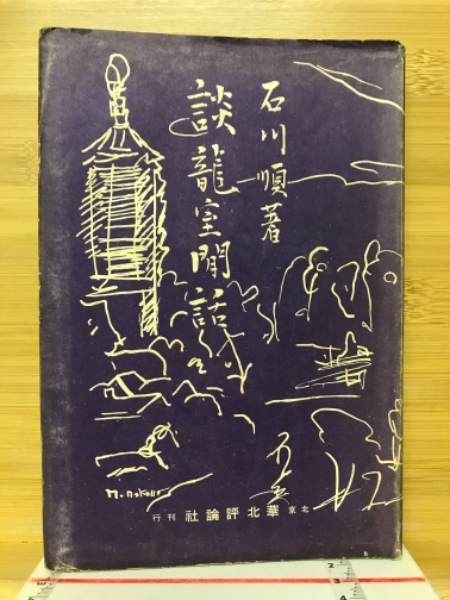 石川順著
談龍室閒話
北京 華北評論社 刊行
2
3
4